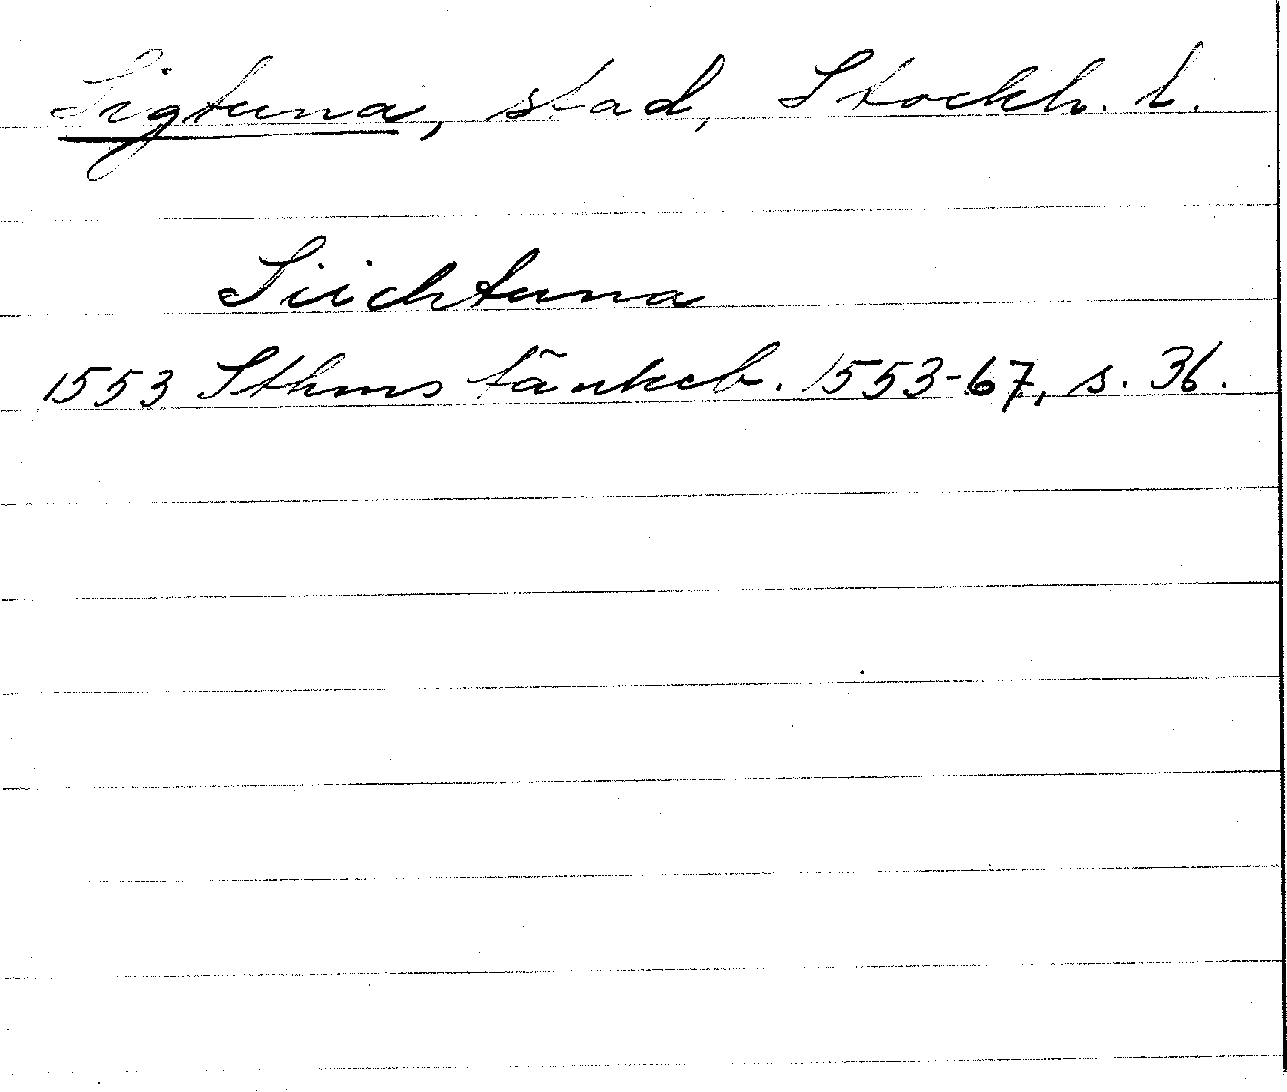 Sigtuna, stad, Stockh. l.
Siichtuna
1553 Sthms tänkeb. 1553-67, s. 36.